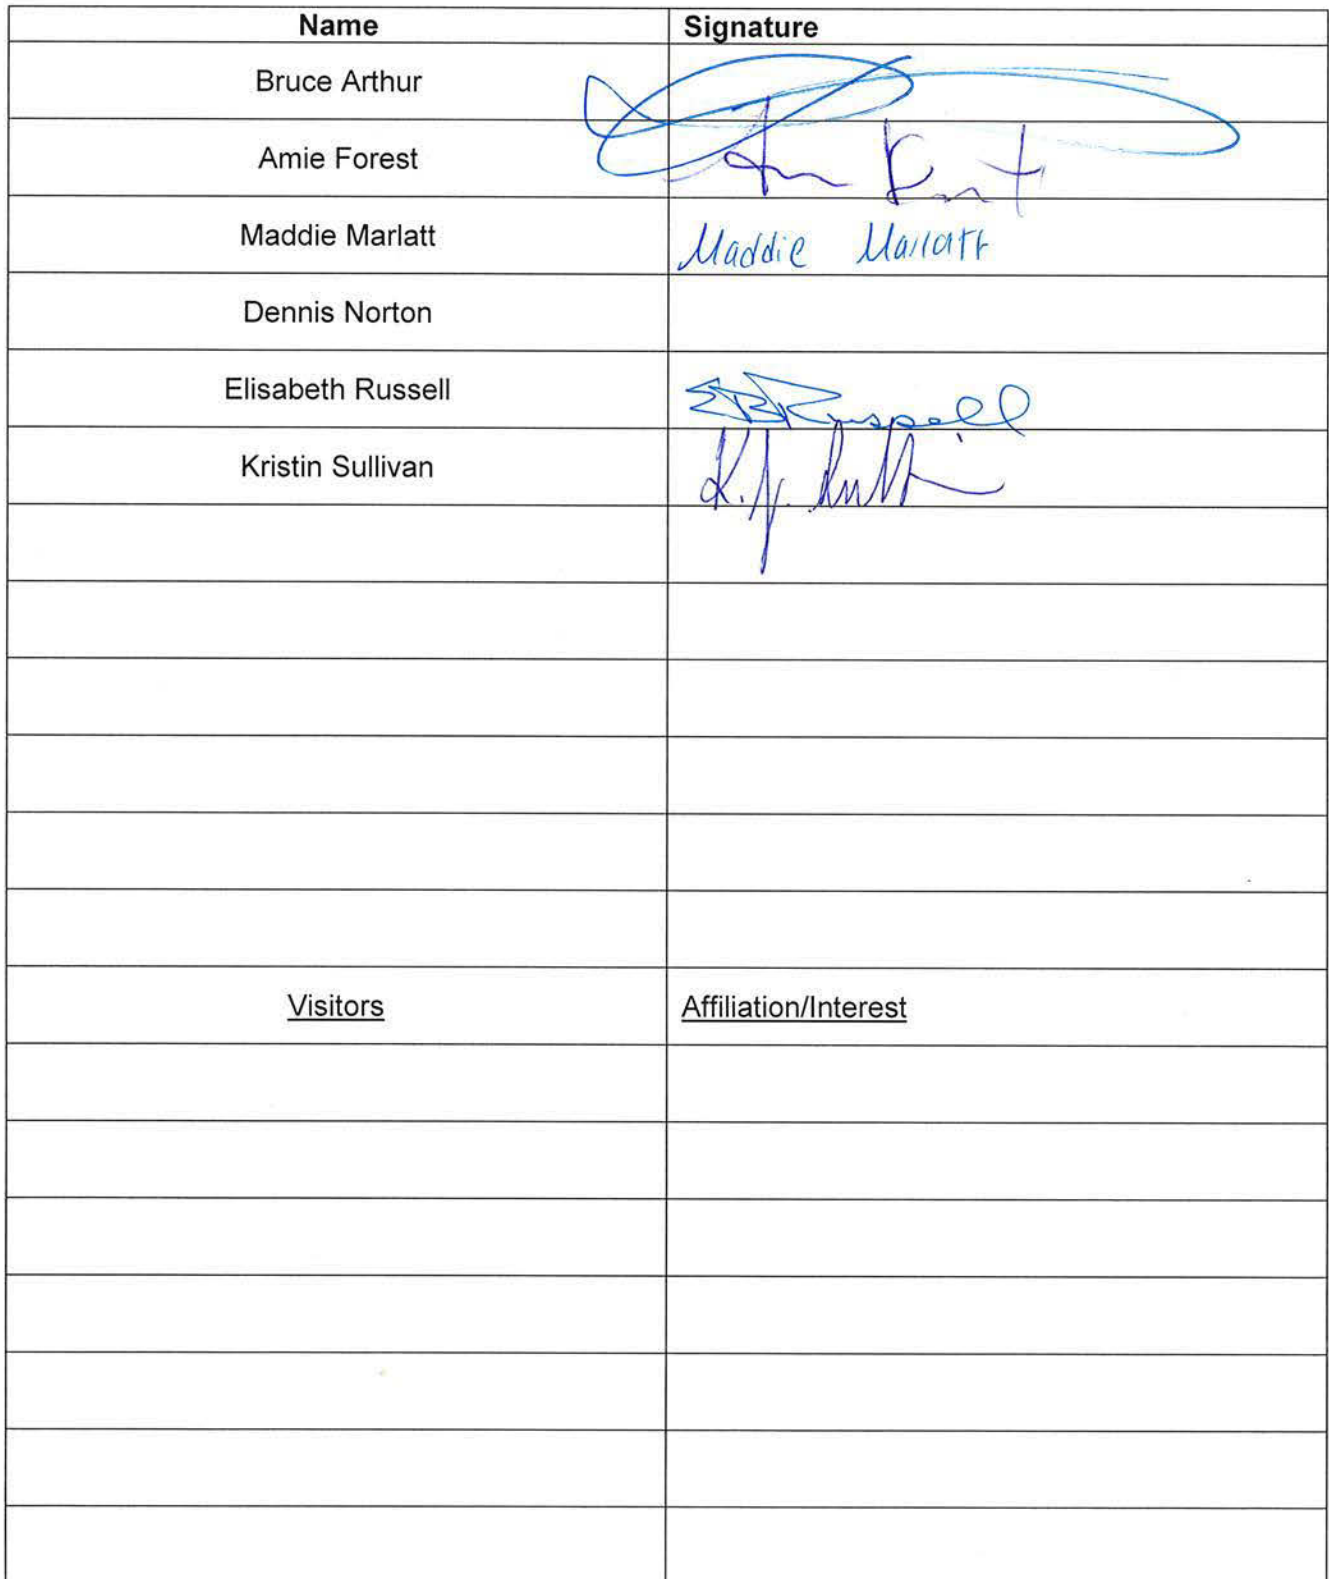 Name Signature
Bruce Arthur
Amie Forest
Maddie Marlatt Maddie Marlatt
Dennis Norton
Elisabeth Russell EBRussell
Kristin Sullivan K. J.
Visitors Affiliation/Interest